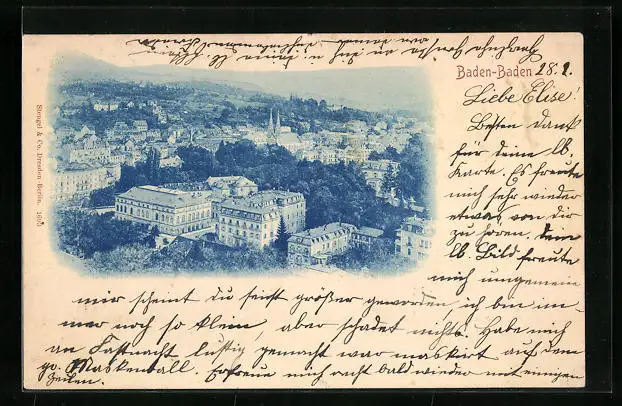 Baden-Baden 28.2.
Liebe Elise!
Besten Dank
für deine lb.
Karte. Es freute
mich sehr wieder
etwas von dir
zu hören, dein
lb. Bild freute
mich ungemein
mir scheint du seist größer geworden, ich bin im-
mer noch so klein, aber schadet nichts. Habe mich
an Fastnacht lustig gemacht war maskiert auf dem
gr. Maskenball. Erfreue mich recht bald wieder mit einigen
Zeilen.
Stengel & Co. Dresden Berlin.